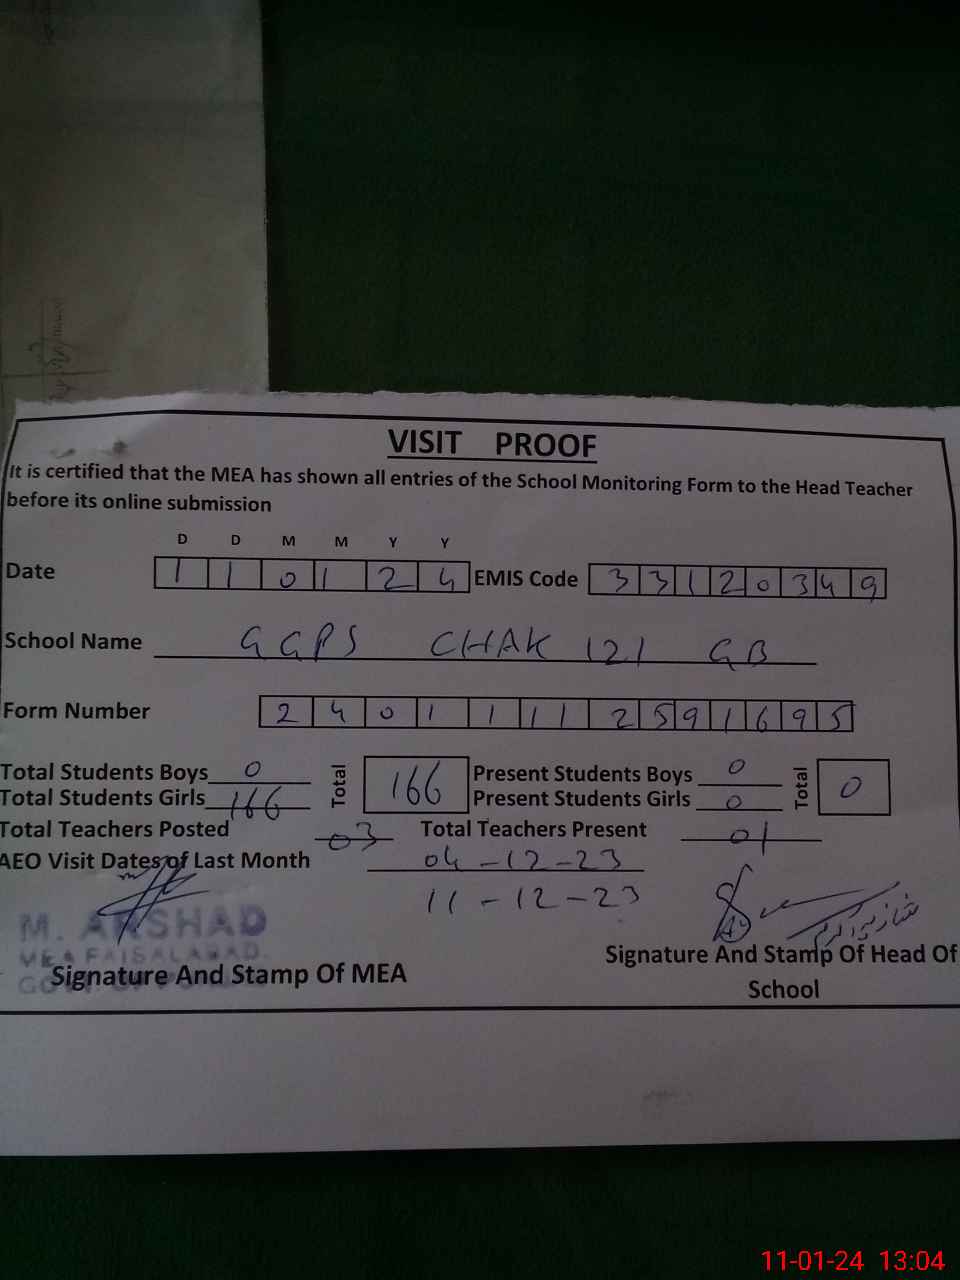 VISIT PROOF
It is certified that the MEA has shown all entries of the School Monitoring Form to the Head Teacher
before its online submission
D D M M Y Y
Date 1 1 0 1 2 4 EMIS Code 3 3 1 2 0 3 4 9
School Name GGPS CHAK 121 GB
Form Number 2 4 0 1 1 11 2 5 9 1 6 9 5
Total Students Boys 0 Total 166 Present Students Boys 0 Total 0
Total Students Girls 166 Present Students Girls 0
Total Teachers Posted 03 Total Teachers Present 01
AEO Visit Dates of Last Month 04-12-23
11-12-23
M. ARSHAD
MEA FAISALABAD
Signature And Stamp Of MEA
Signature And Stamp Of Head Of
School
11-01-24 13:04